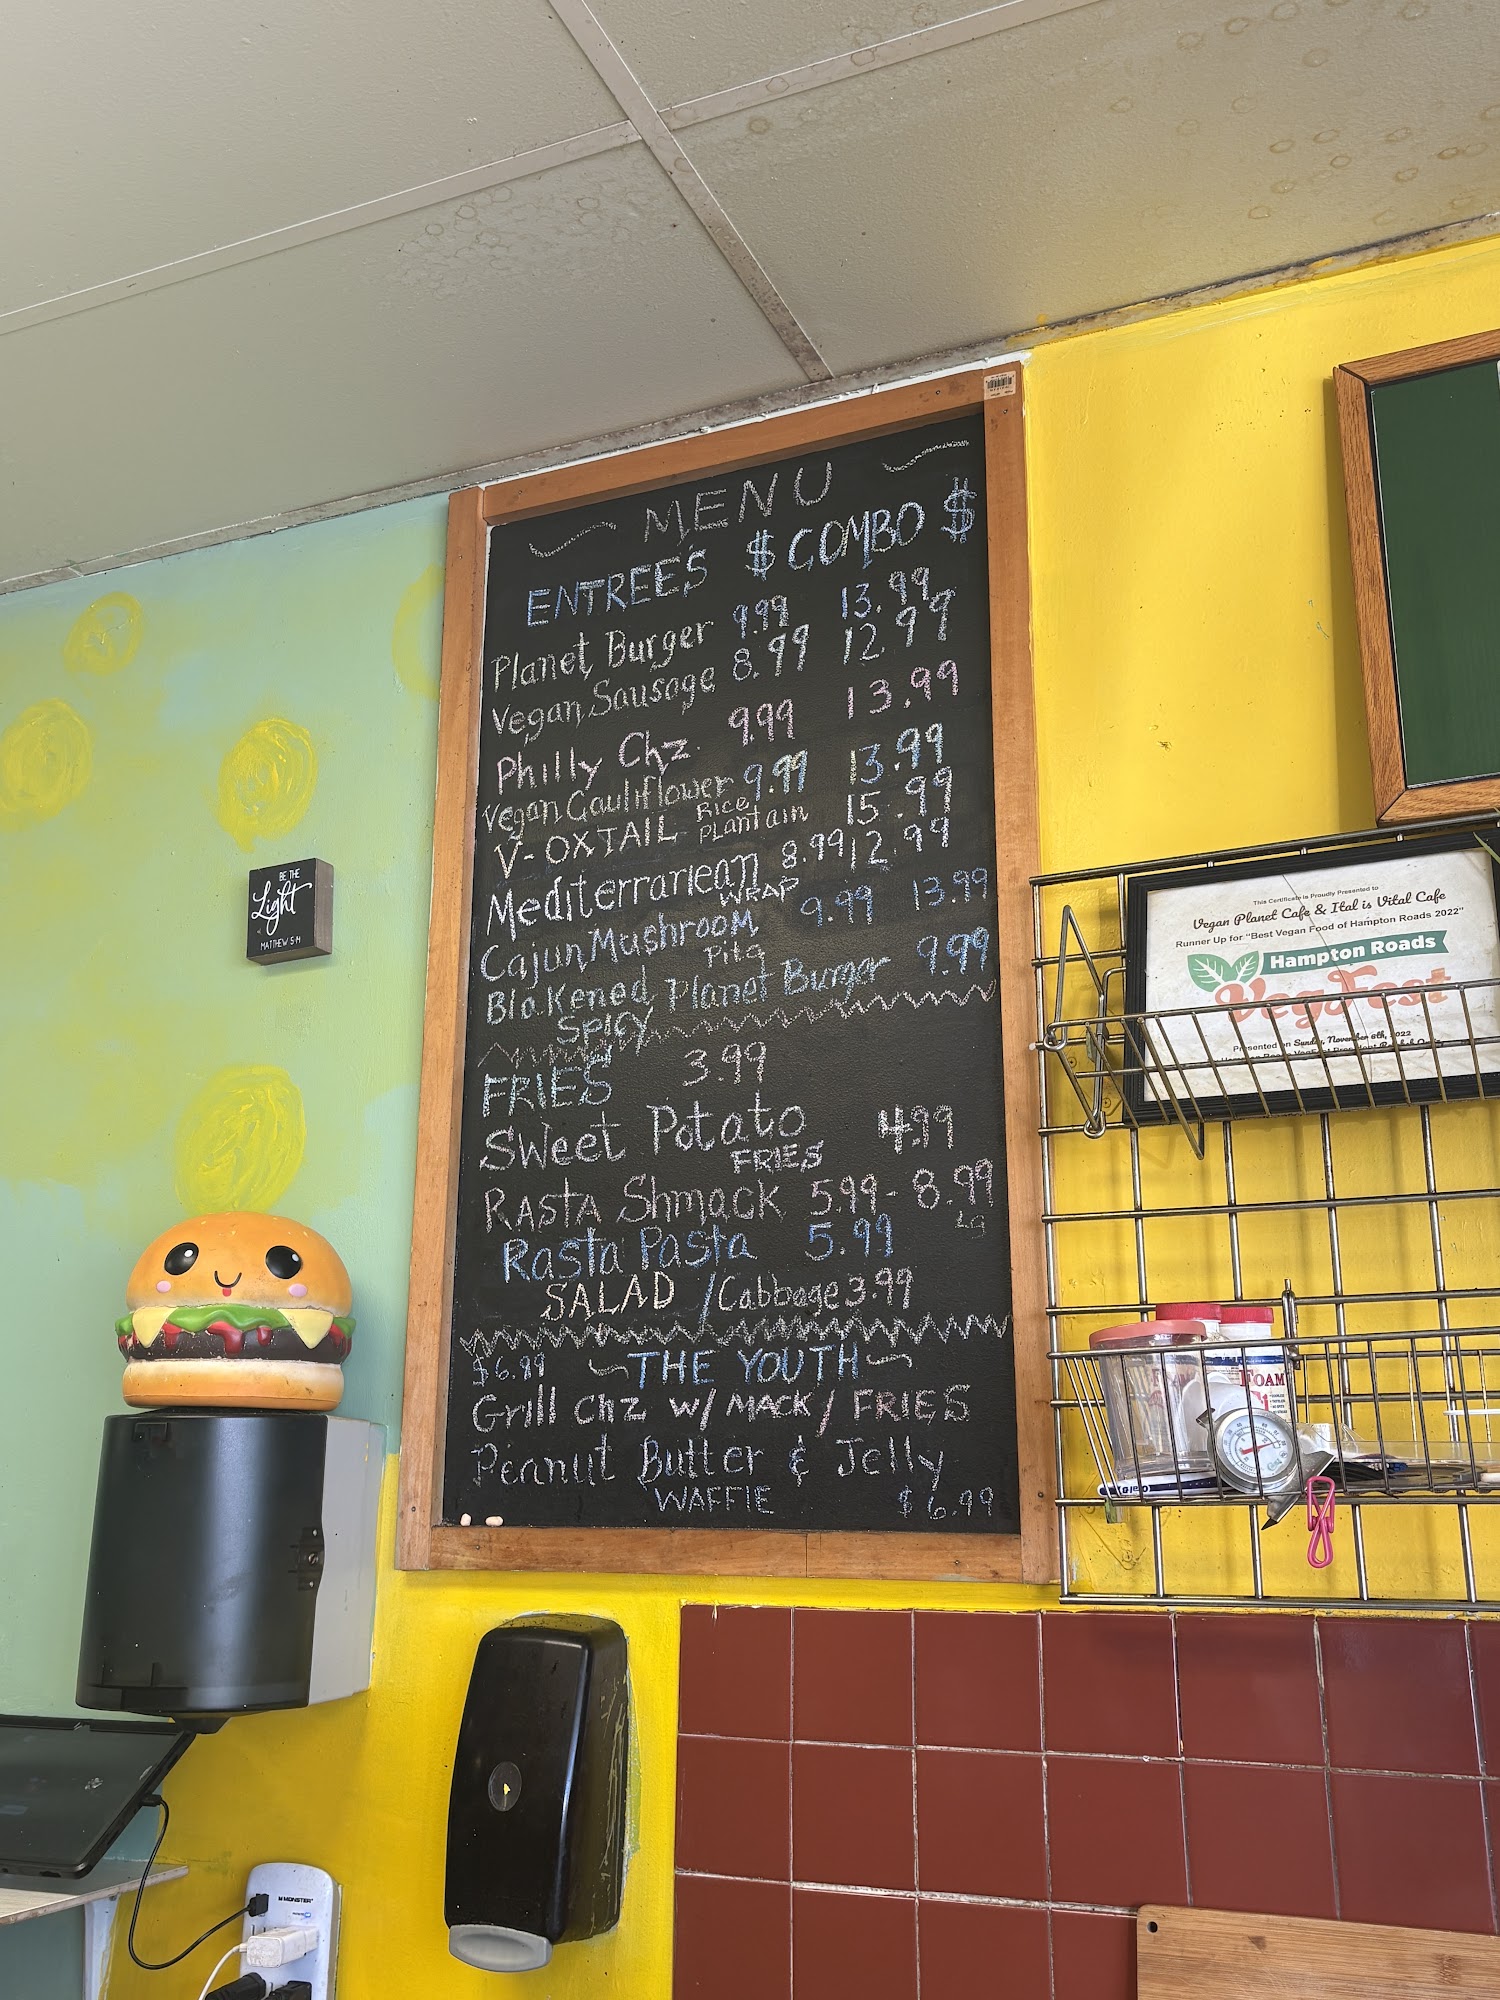 MENU
ENTREES $ COMBO $
Planet Burger 9.99 13.99
Vegan Sausage 8.99 12.99
Philly Chz. 9.99 13.99
Vegan Cauliflower 9.99 13.99
V-OXTAIL - Rice Plantain 15.99
Mediterranean WRAP 8.99 12.99
Cajun Mushroom Pita 9.99 13.99
Blakened Planet Burger 9.99
SPICY
FRIES 3.99
Sweet Potato FRIES 4.99
RASTA Shmack 5.99 - 8.99
Lg
Rasta Pasta 5.99
SALAD / Cabbage 3.99
$6.99 THE YOUTH
Grill Chz w/ MACK / FRIES
Peanut Butter & Jelly
WAFFlE $6.99
BE THE
Light
MATTHEW 5:14
This Certificate is Proudly Presented to
Vegan Planet Cafe & Ital is Vital Cafe
Runner Up for "Best Vegan Food of Hampton Roads 2022"
Hampton Roads
VegFest
Presented on Sunday, November 6th, 2022
FOAM
MONSTER